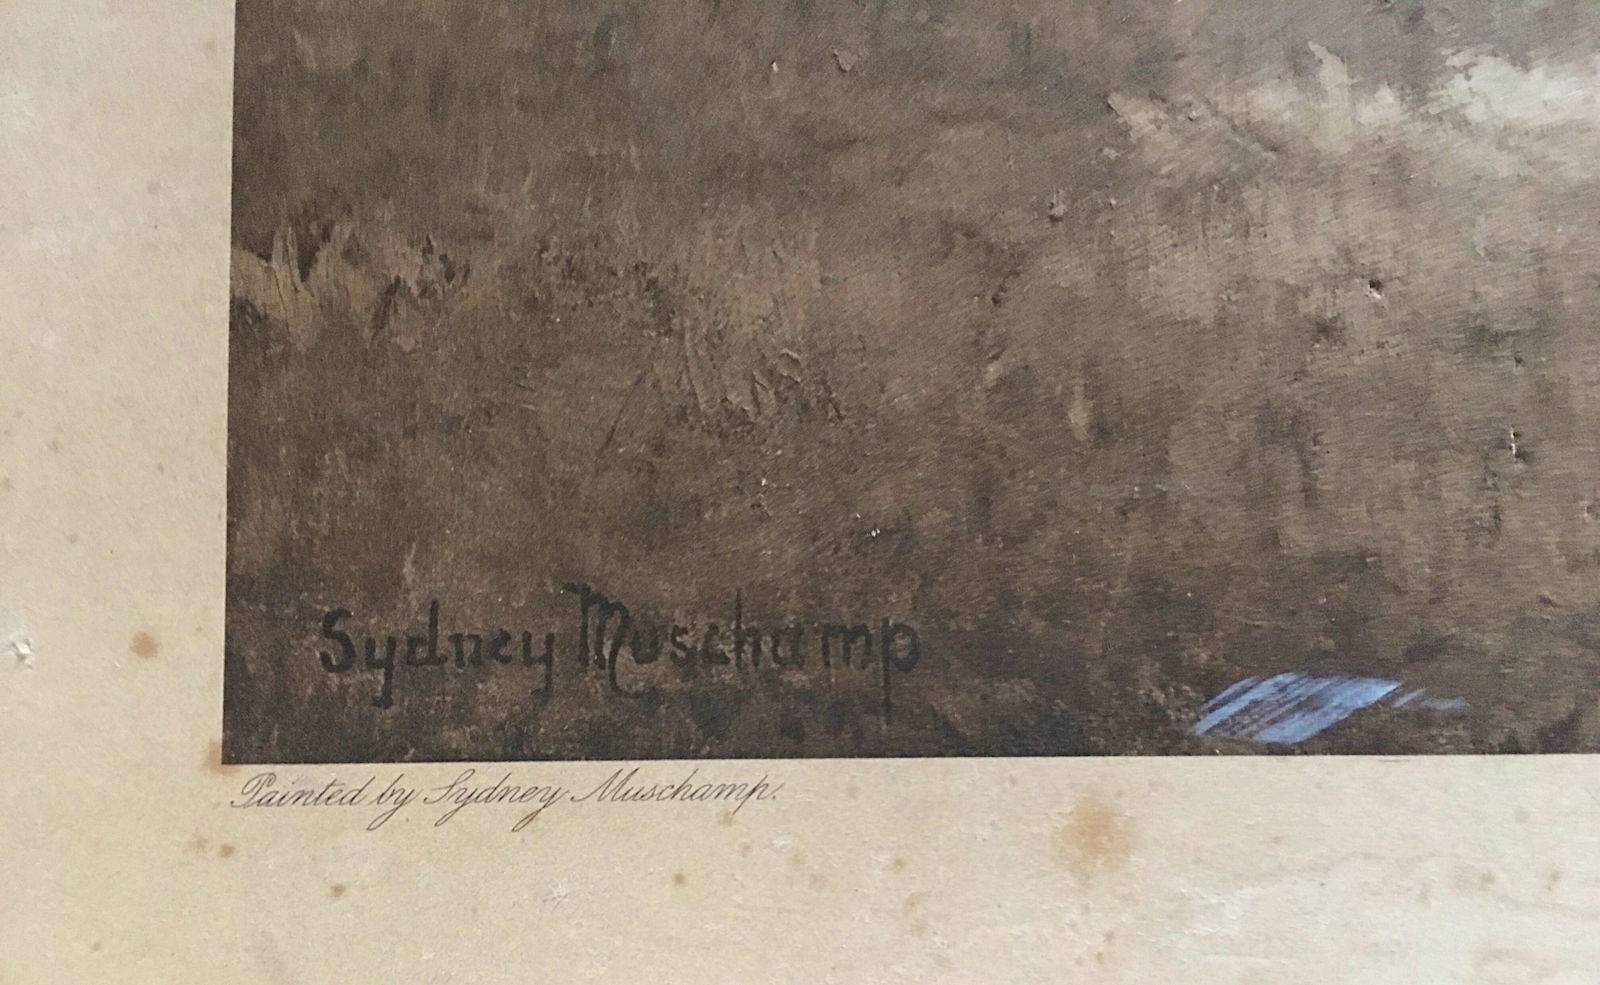 Sydney Muschamp
Painted by Sydney Muschamp.